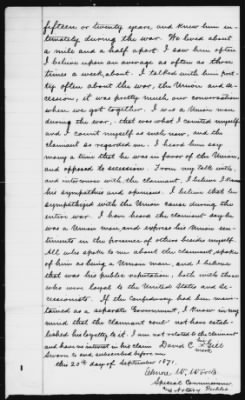 fifteen or twenty years, and knew him in-
timately during the war. We lived about
a mile and a half apart. I saw him often
I believe upon an average as often as three
times a week, about. I talked with him pret-
ty often about the war, the Union and se-
cession, it was pretty much our conversation
when we got together. I was a Union man
during the war, that was what I counted myself
and I count myself as such now, and the
claimant so regarded me. I heard him say
many a time that he was in favor of the Union,
and opposed to secession. From my talk with,
and intercourse with, the claimant, I believe I knew
his sympathies and opinions. I believe that he
sympathized with the Union cause during the
entire war. I have heard the claimant say he
was a Union man, and express his Union sen-
timents in the presence of others besides myself.
All who spoke to me about the claimant spoke
of him as being a Union man, and I believe
that was his public reputation, both with those
who were loyal to the United States and se-
cessionists. If the Confederacy had been main-
tained as a separate Government, I know in my
mind that the claimant could not have estab-
lished his loyalty to it. I am not related to the claimant
and have no interest in his claim David C. Gill
Sworn to and subscribed before me mark
this 20th day of September 1871.
Special Commissioner
and Notary Public